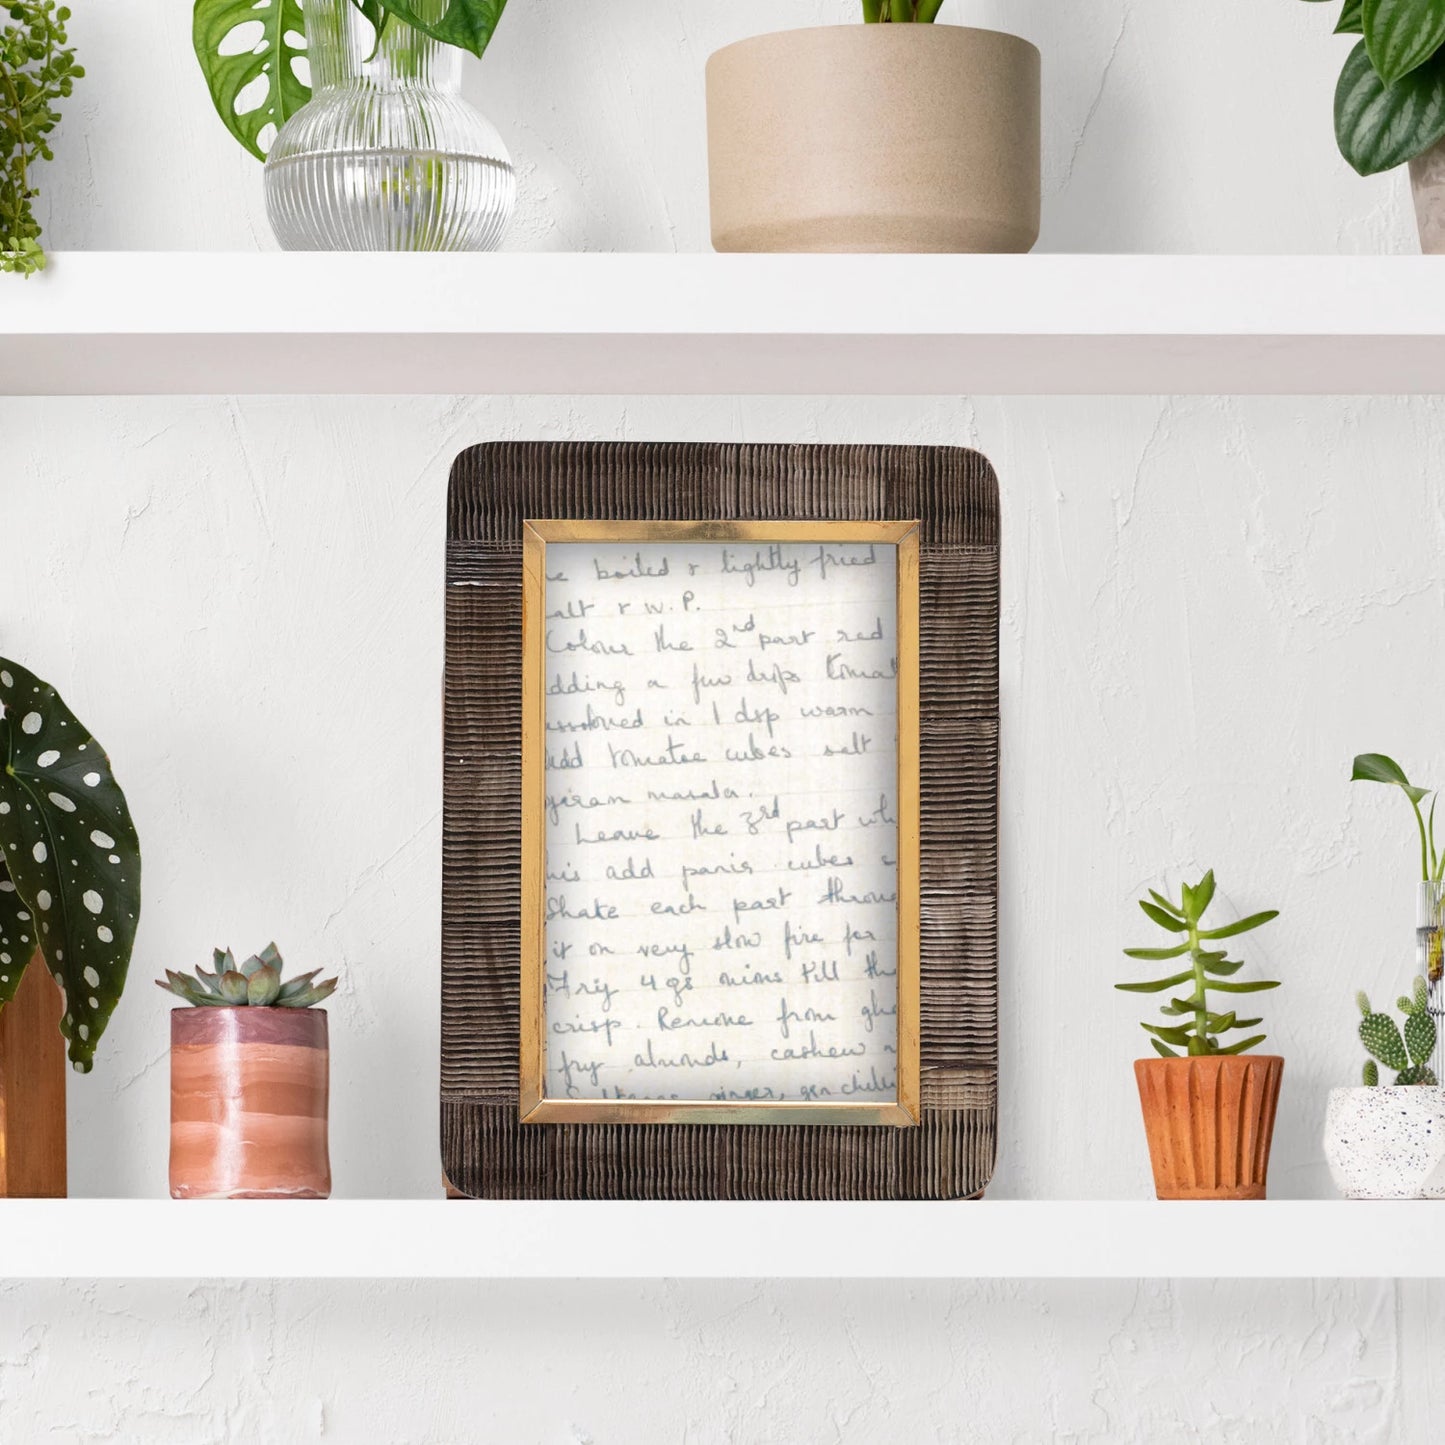 e boiled & lightly fried
alt & W.P.
Colour the 2nd part red
dding a few drps tomat
issolved in 1 dsp warm
Add tomatoe cubes salt
garam masala.
Leave the 3rd part wh
his add panir cubes
Shake each part throu
it on very slow fire for
Fry 4 gs onions till the
crisp. Remove from ghe
fry almonds, cashew n
Sultanas, ginger, grn chilli